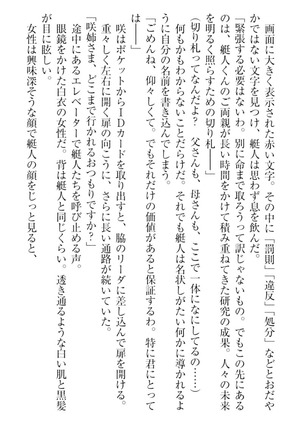 画面に大きく表示された赤い文字。その中に「罰則」「違反」「処分」などとおだや
かではない文字を見つけ、艇人は思わず息を飲んだ。
「緊張する必要はないわ。別に命まで取ろうって訳じゃないもの。でもこの先にある
のは、艇人くんのご両親が長い時間をかけて積み重ねてきた研究の成果。人々の未来
を明るく照らすための切り札――」
（切り札ってなんだよ？　父さんも、母さんも、ここで一体になにしてるの……）
　何もかもわからないことだらけだ。それでも艇人は名状しがたい何かに導かれるよ
うに自分の名前を書き込んでしまう。
「ごめんね、仰々しくて。でもそれだけの価値があると保証するわ。特に君にとって
は――」
　咲はポケットからＩＤカードを取り出すと、脇のリーダに差し込んで扉を開ける。
重々しく左右に開く扉の向こうに、さらに長い通路が続いていた。
「咲姉さま、どこまで行かれるおつもりですか？」
　途中にあるエレベーターで艇人たちを呼び止める声。
　眼鏡をかけた白衣の女性だ。背は艇人と同じくらい。透き通るような白い肌と黒髪
が目に眩しい。
　女性は興味深そうな顔で艇人の顔をじっと見ると、